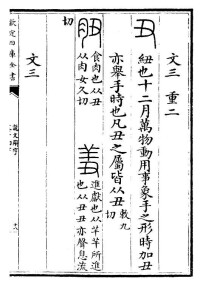 文三 重二
丑 紐也十二月萬物動用事象手之形時加丑
亦舉手時也凡丑之屬皆从丑 敕九切
𦘺 食肉也从丑
从肉女久切
羞 進獻也从羊羊所進
也从丑丑亦聲息流
切
文三
欽定四庫全書